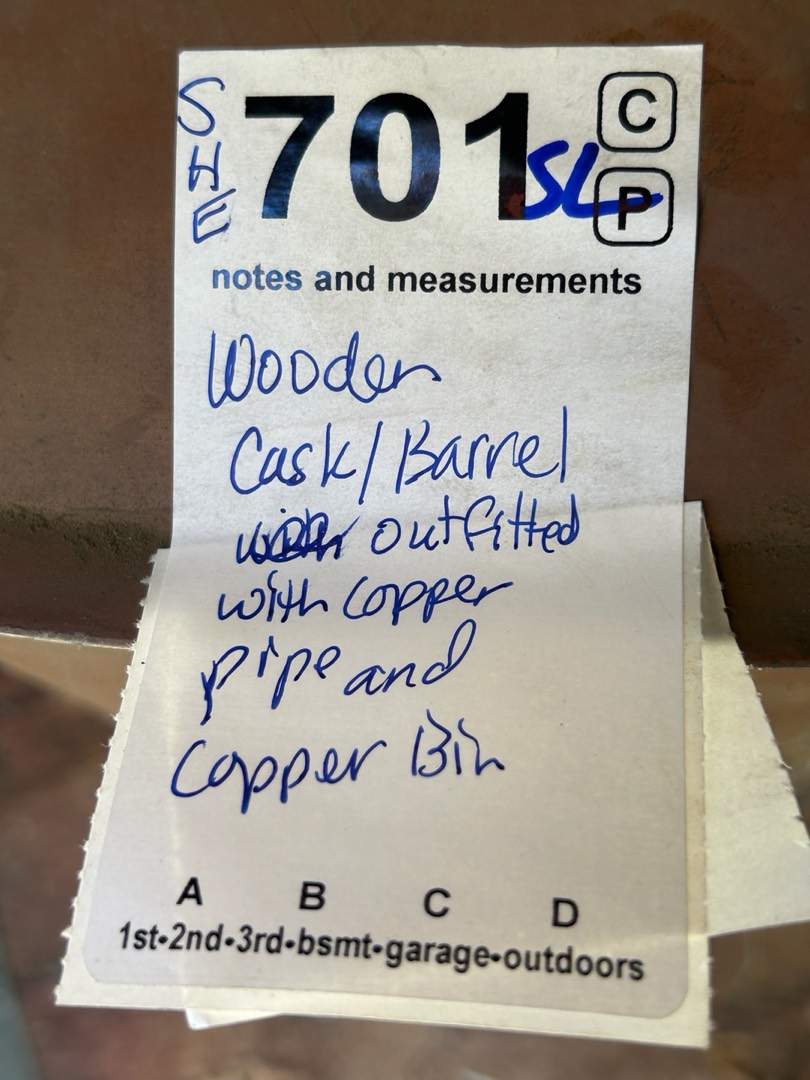 SHE
701 SL
C
P
notes and measurements
Wooden
Cask/Barrel
outfitted
with copper
pipe and
Copper Bin
A B C D
1st•2nd•3rd•bsmt•garage•outdoors